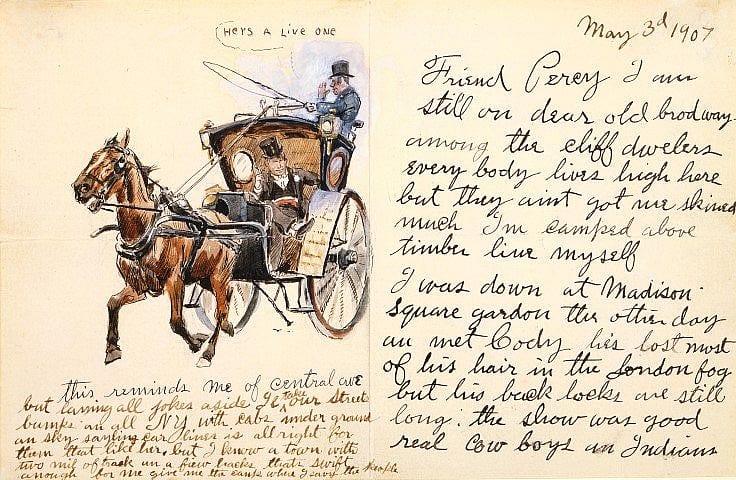 HERS A LIVE ONE
this reminds me of central ave
but laying all jokes aside Id take our Streets
bumps an all NY with cabs under ground
an sky sayling car lines is all right for
them that like her. but I know a town with
two mil of track an a fiew hacks thats swift
anough for me give me the camp where I savy the people
May 3d 1907
Friend Percy I am
still on dear old brodway
among the cliff dwelers
every body lives high here
but they aint got me skined
much Im camped above
timber line myself
I was down at Madison
Square gardon the other day
an met Cody hes lost most
of his hair in the London fog
but his back locks are still
long. the show was good
real cow boys an Indians